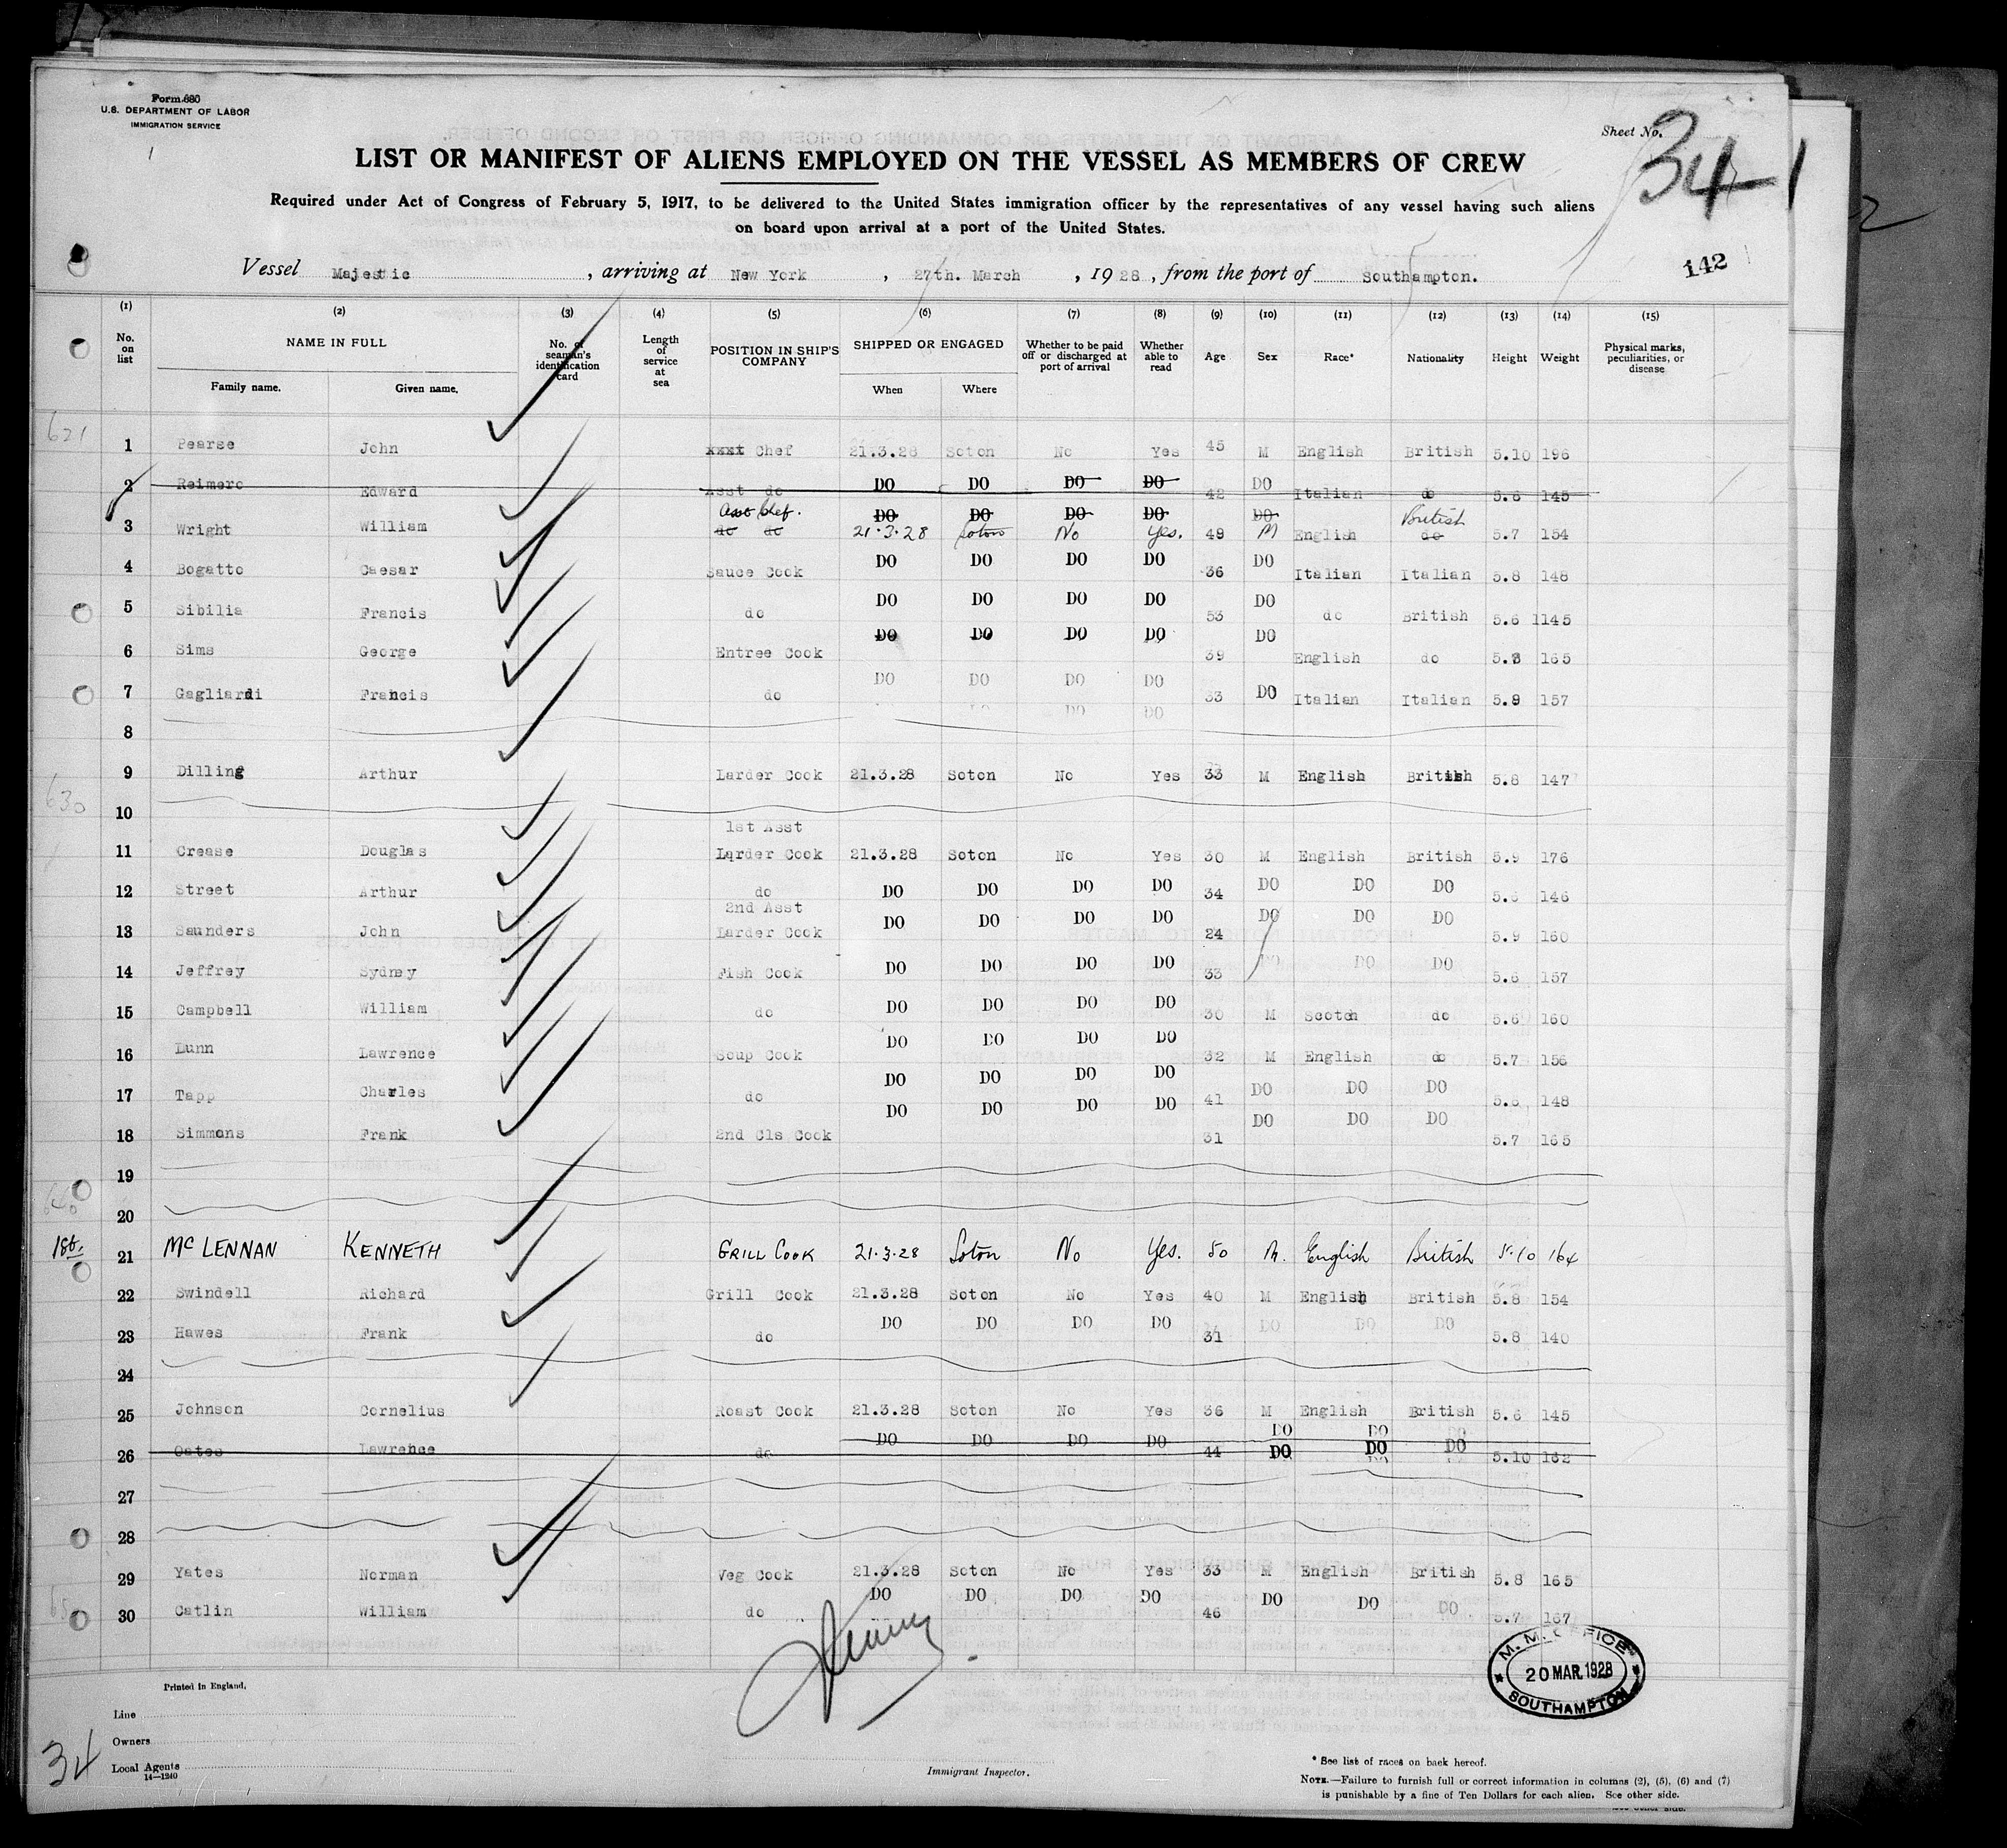 Form 680
U.S. DEPARTMENT OF LABOR
IMMIGRATION SERVICE
Sheet No. 34
LIST OR MANIFEST OF ALIENS EMPLOYED ON THE VESSEL AS MEMBERS OF CREW
Required under Act of Congress of February 5, 1917, to be delivered to the United States immigration officer by the representatives of any vessel having such aliens
on board upon arrival at a port of the United States.
Vessel Majestic, arriving at New York, 27th. March, 1928, from the port of Southampton.
142
(1) (2) (3) (4) (5) (6) (7) (8) (9) (10) (11) (12) (13) (14) (15)
No. on list NAME IN FULL No. of seaman's identification card Length of service at sea POSITION IN SHIP'S COMPANY SHIPPED OR ENGAGED Whether to be paid off or discharged at port of arrival Whether able to read Age Sex Race* Nationality Height Weight Physical marks, peculiarities, or disease
Family name. Given name. When Where
621
1 Pearse John xxxx Chef 21.3.28 Soton No Yes 45 M English British 5.10 196
2 Reimero Edward Asst do DO DO DO DO 42 DO Italian do 5.6 145
Asst Chef. DO DO DO DO DO British
3 Wright William do do 21.3.28 Soton No Yes. 49 M English do 5.7 154
4 Bogatto Caesar Sauce Cook DO DO DO DO 36 DO Italian Italian 5.8 148
5 Sibilia Francis do DO DO DO DO 53 DO do British 5.6 1145
6 Sims George Entree Cook DO DO DO DO 39 DO English do 5.8 165
7 Gagliardi Francis do DO DO DO DO 33 DO Italian Italian 5.9 157
DO DO DO
8
9 Dilling Arthur Larder Cook 21.3.28 Soton No Yes 33 M English British 5.8 147
630
10
1st Asst
11 Crease Douglas Larder Cook 21.3.28 Soton No Yes 30 M English British 5.9 176
12 Street Arthur do DO DO DO DO 34 DO DO DO 5.6 146
2nd Asst
13 Saunders John Larder Cook DO DO DO DO 24 DO DO DO 5.9 160
14 Jeffrey Sydney Fish Cook DO DO DO DO 33 DO DO DO 5.6 157
15 Campbell William do DO DO DO DO 30 M Scotch do 5.6 160
16 Lunn Lawrence Soup Cook DO DO DO DO 32 M English do 5.7 156
17 Tapp Charles do DO DO DO DO 41 DO DO DO 5.6 148
18 Simmons Frank 2nd Cls Cook DO DO DO DO 31 DO DO DO 5.7 165
19
640
20
1st. 21 Mc LENNAN KENNETH GRILL COOK 21.3.28 Soton No Yes. 50 M. English British 5.10 164
22 Swindell Richard Grill Cook 21.3.28 Soton No Yes 40 M English British 5.8 154
23 Hawes Frank do DO DO DO DO 31 DO DO DO 5.8 140
24
25 Johnson Cornelius Roast Cook 21.3.28 Soton No Yes 36 M English British 5.6 145
DO DO
26 Oates Lawrence do DO DO DO DO 44 DO DO DO 5.10 162
27
28
29 Yates Norman Veg Cook 21.3.28 Soton No Yes 33 M English British 5.8 165
30 Catlin William do DO DO DO DO 46 DO DO DO 5.7 167
M. M. OFFICE
20 MAR 1928
SOUTHAMPTON
Printed in England.
Line
Owners
Local Agents
14—1240
34
Immigrant Inspector.
* See list of races on back hereof.
NOTE.—Failure to furnish full or correct information in columns (2), (5), (6) and (7)
is punishable by a fine of Ten Dollars for each alien. See other side.